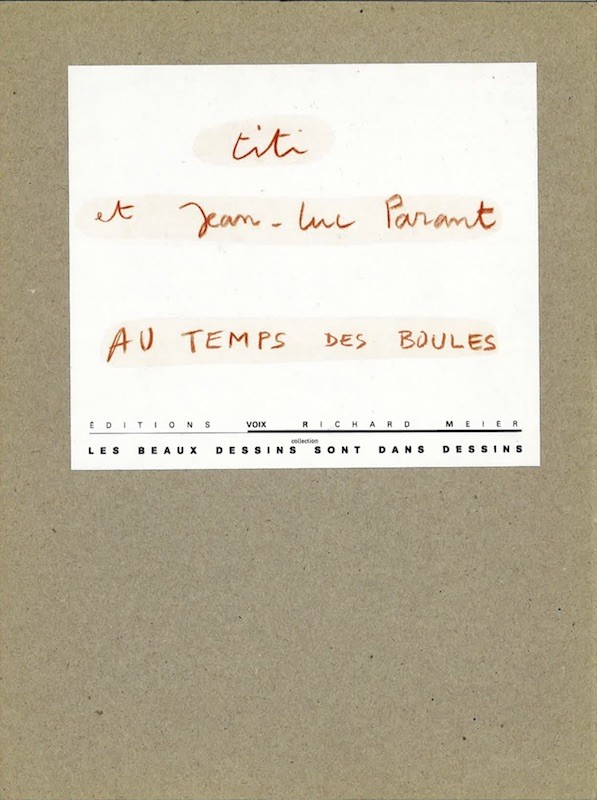 titi
et Jean-Luc Parant
AU TEMPS DES BOULES
ÉDITIONS VOIX RICHARD MEIER
collection
LES BEAUX DESSINS SONT DANS DESSINS